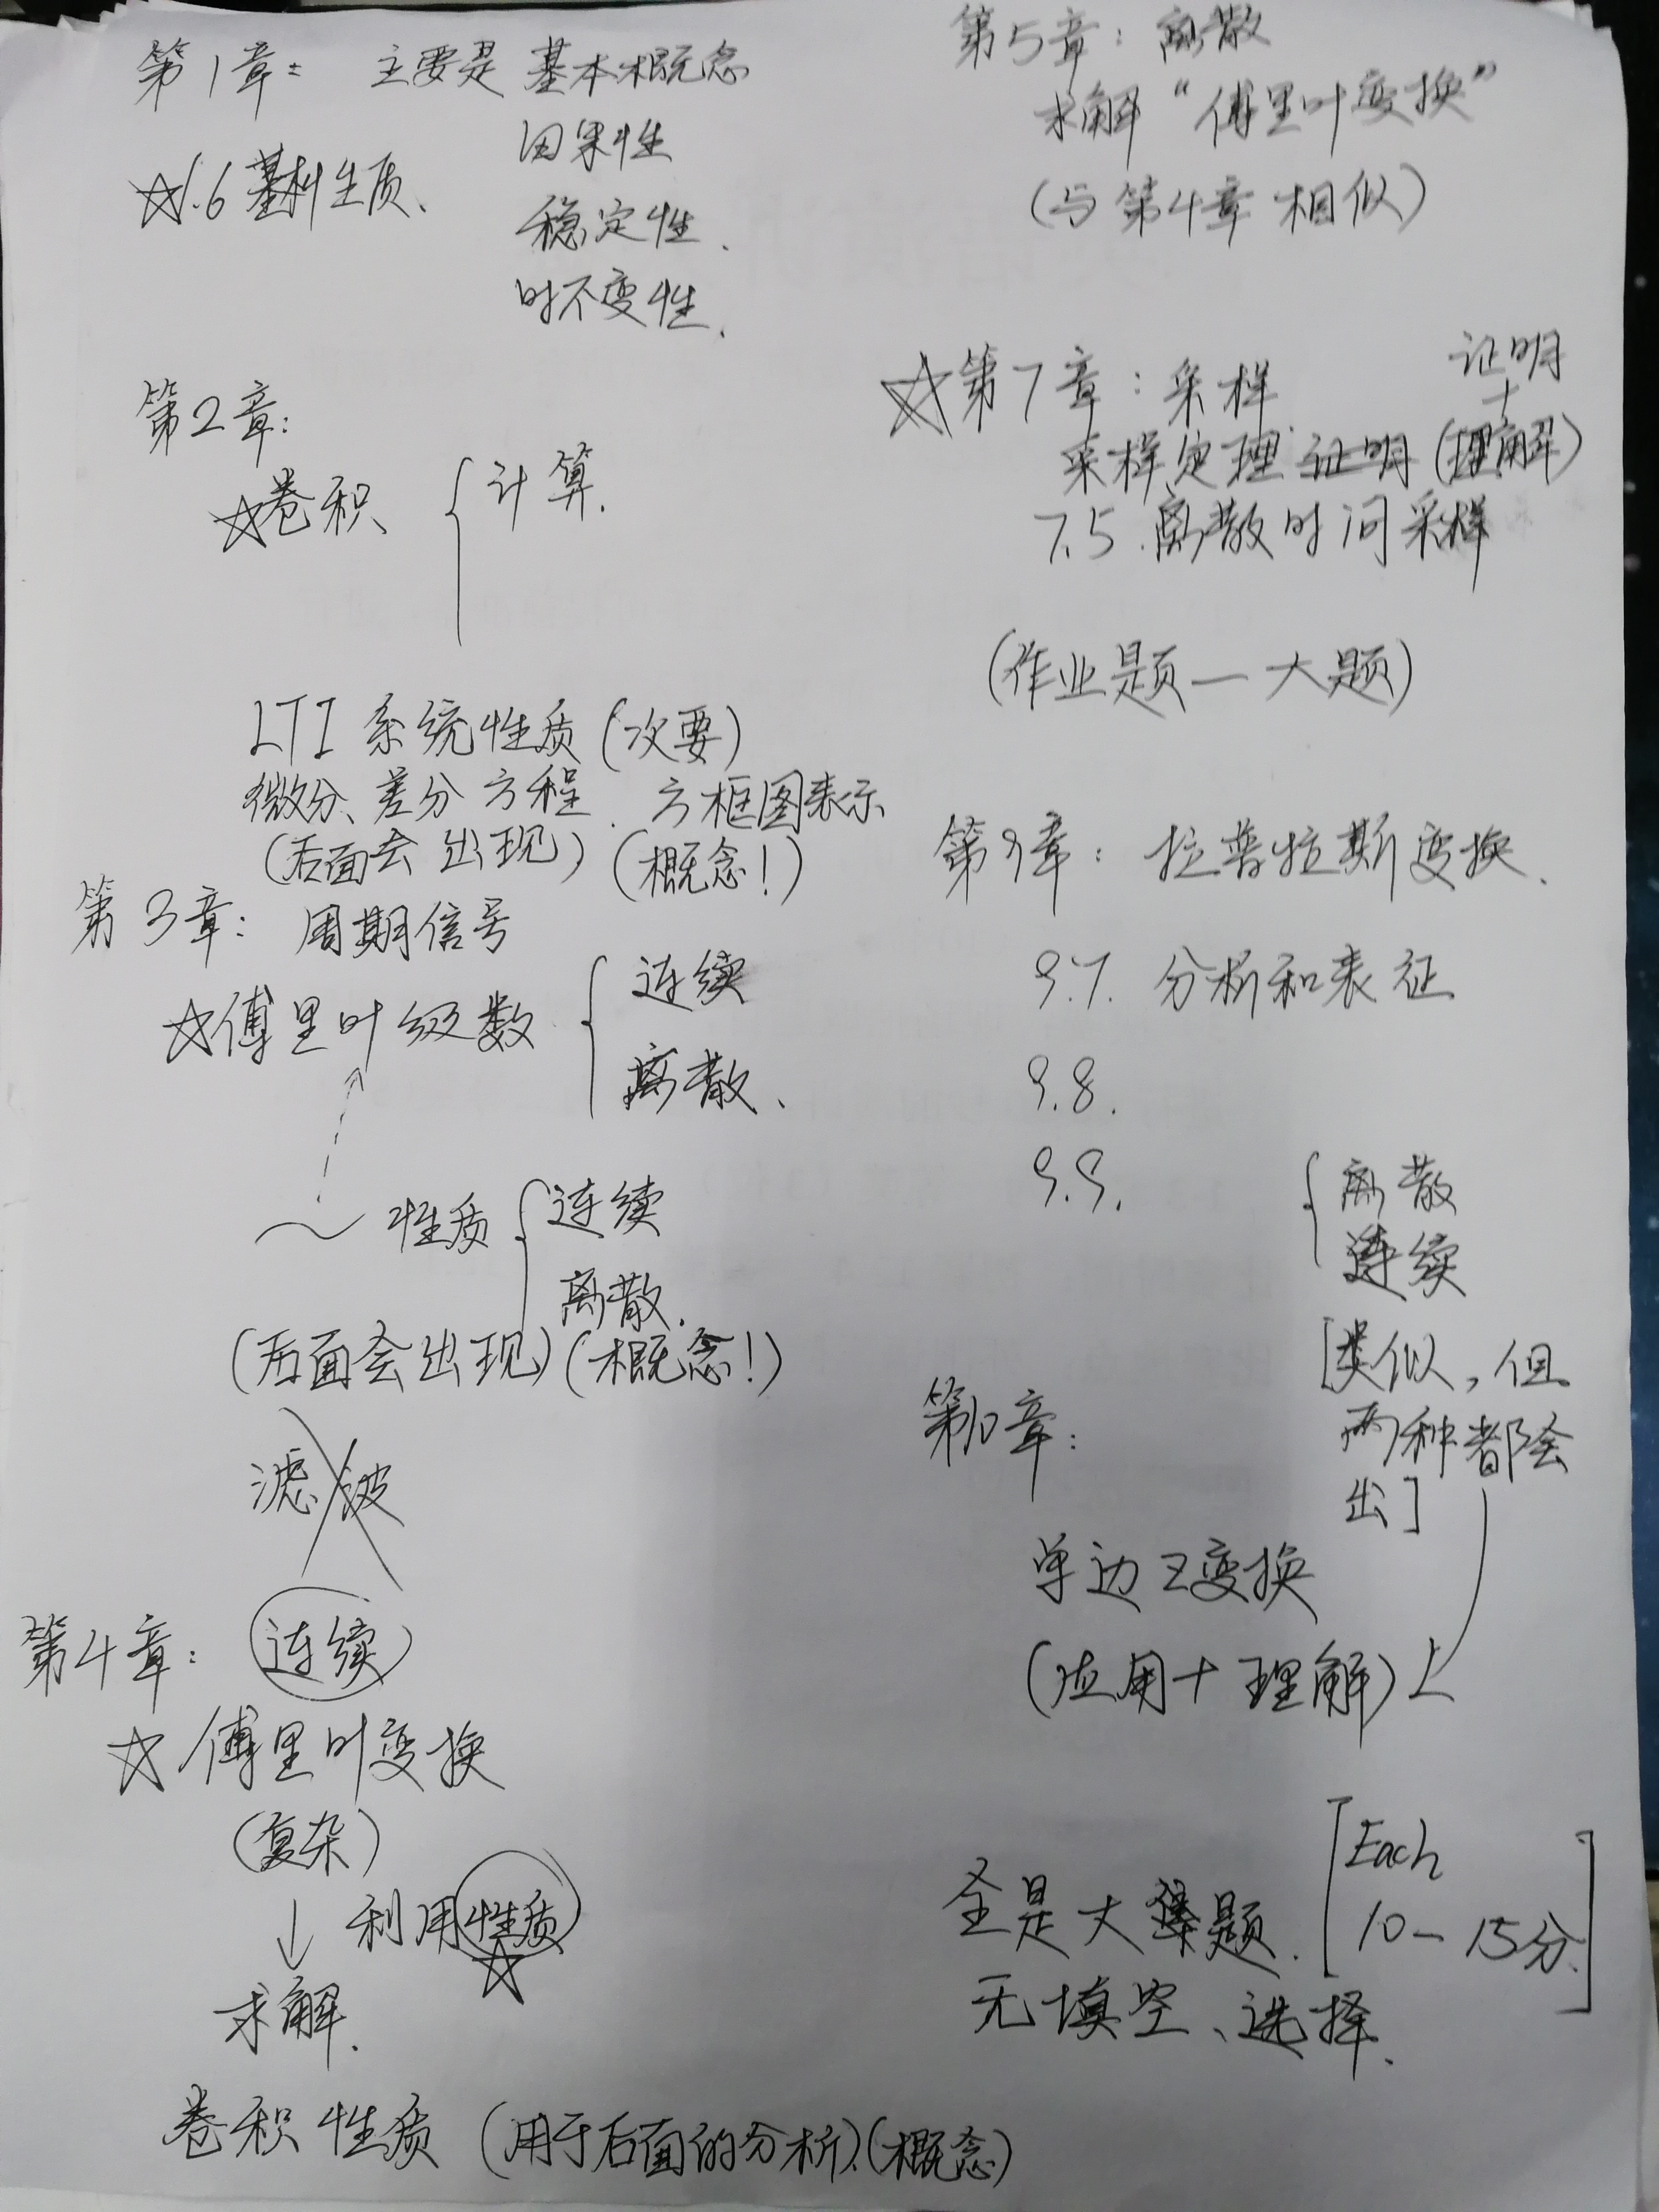 第1章: 主要是 基本概念
因果性
☆1.6 基本性质、
稳定性、
时不变性、
第2章:
☆卷积 { 计算.
LTI 系统性质 (次要)
微分、差分方程. 方框图表示
(后面会出现) (概念!)
第3章: 周期信号
☆傅里叶级数 { 连续
离散、
~ 性质 { 连续
离散.
(后面会出现) (概念!)
滤波
第4章: 连续
☆傅里叶变换
(复杂)
↓ 利用性质
☆
求解.
卷积性质 (用于后面的分析).(概念)
第5章: 离散
求解“傅里叶变换”
(与第4章相似)
☆第7章: 采样
证明
+
采样定理 证明 (理解)
7.5. 离散时间采样
(作业题一大题)
第9章: 拉普拉斯变换.
9.7. 分析和表征
9.8.
9.9.
{ 离散
连续
[类似, 但
两种都会
出]
第10章:
单边Z变换
(应用+理解)
全是大题.
[Each
10-15分.]
无填空、选择.